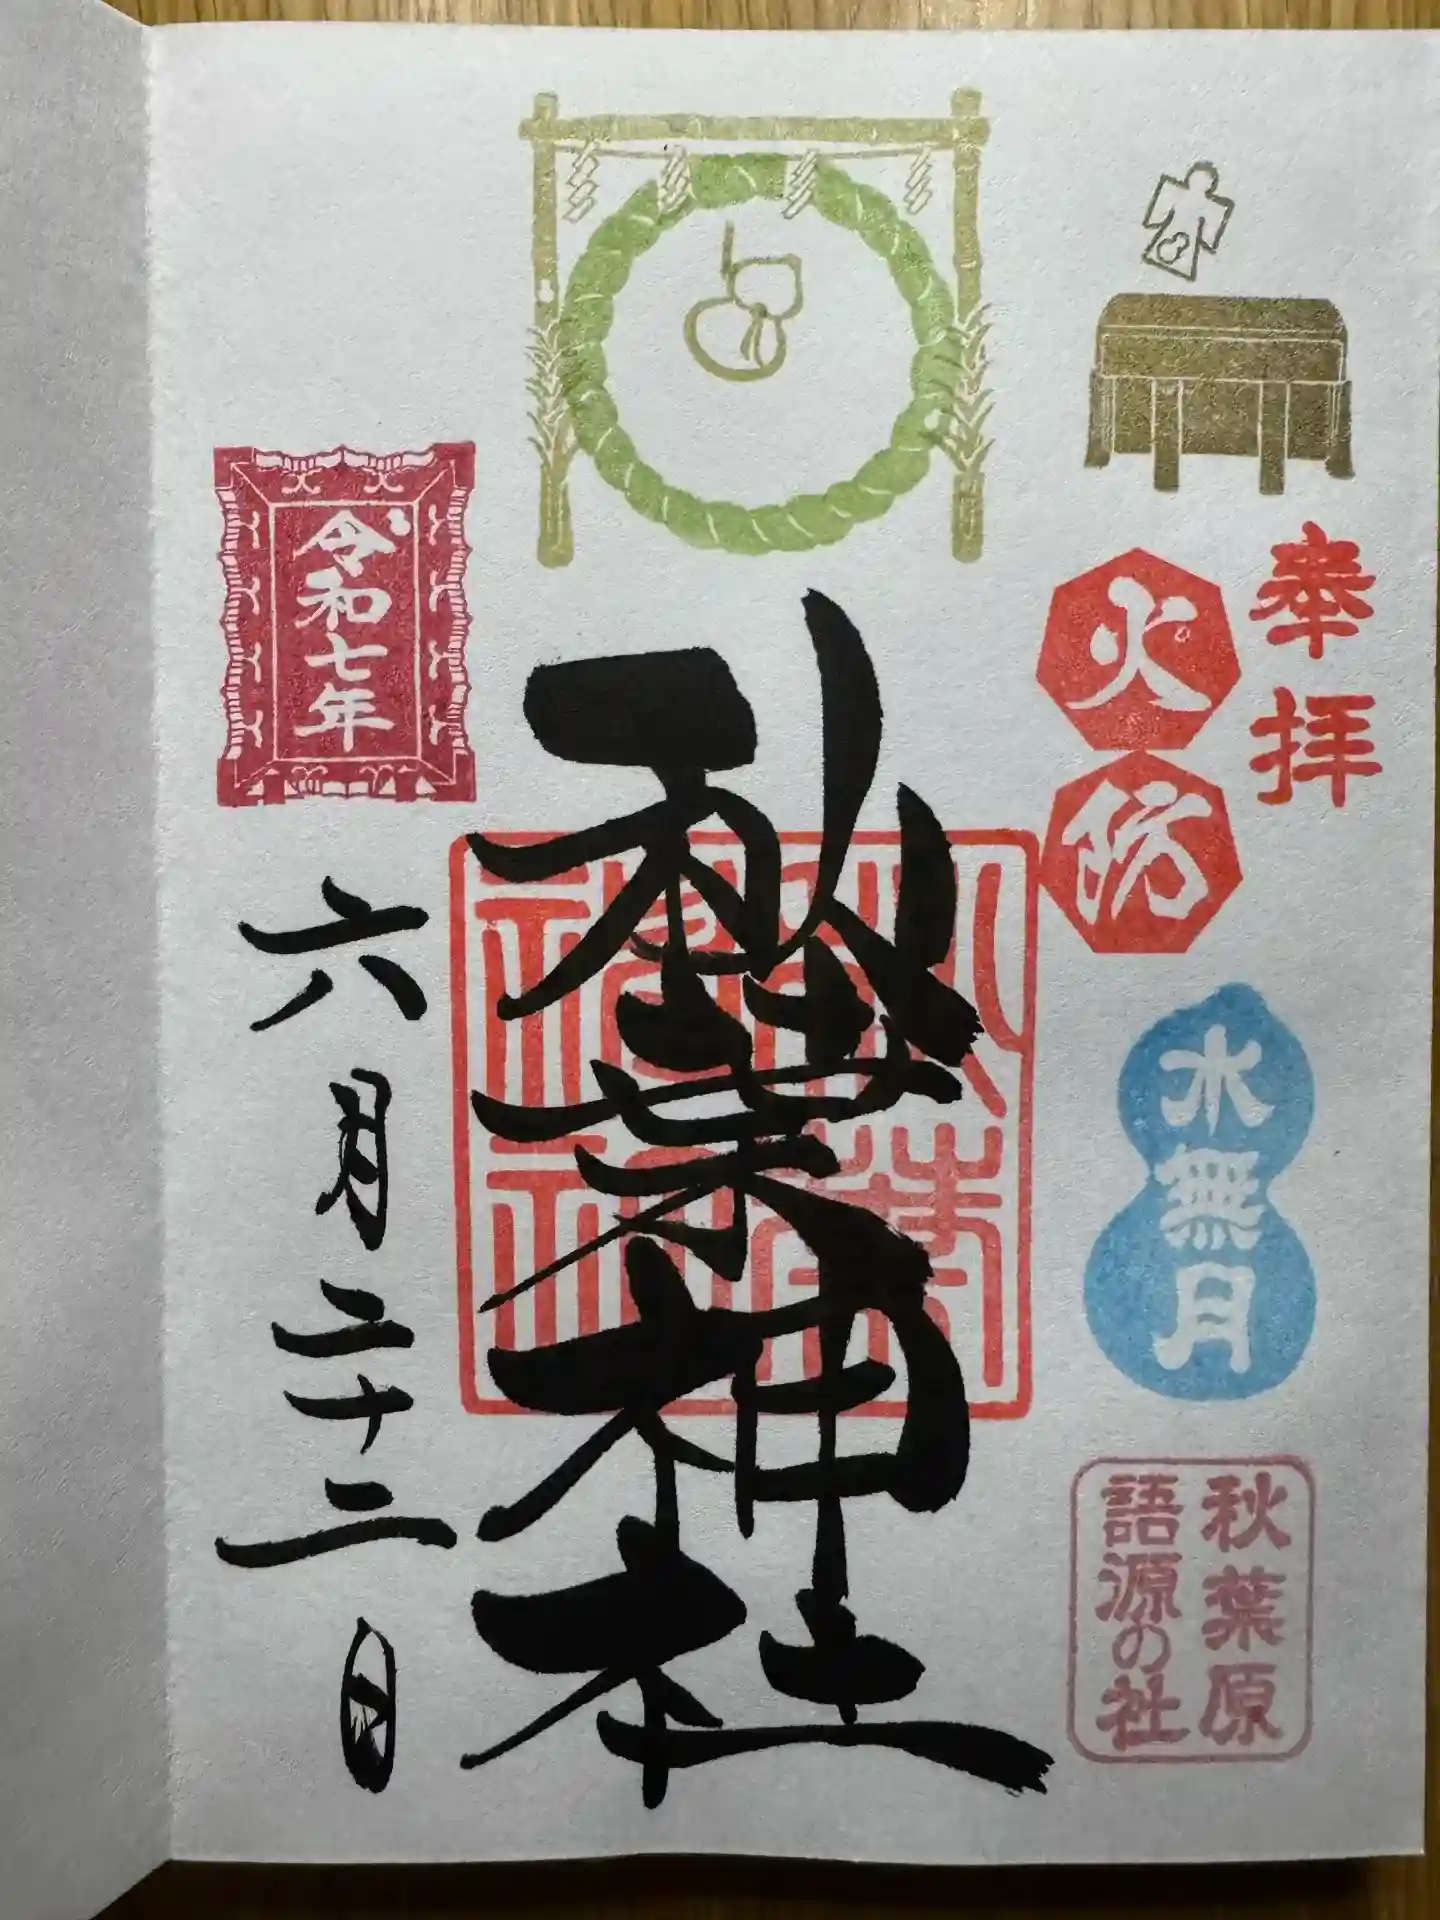 奉拝
火防
水無月
秋葉原
語源の社
秋葉神社
秋葉
神社
令和七年
六月二十二日